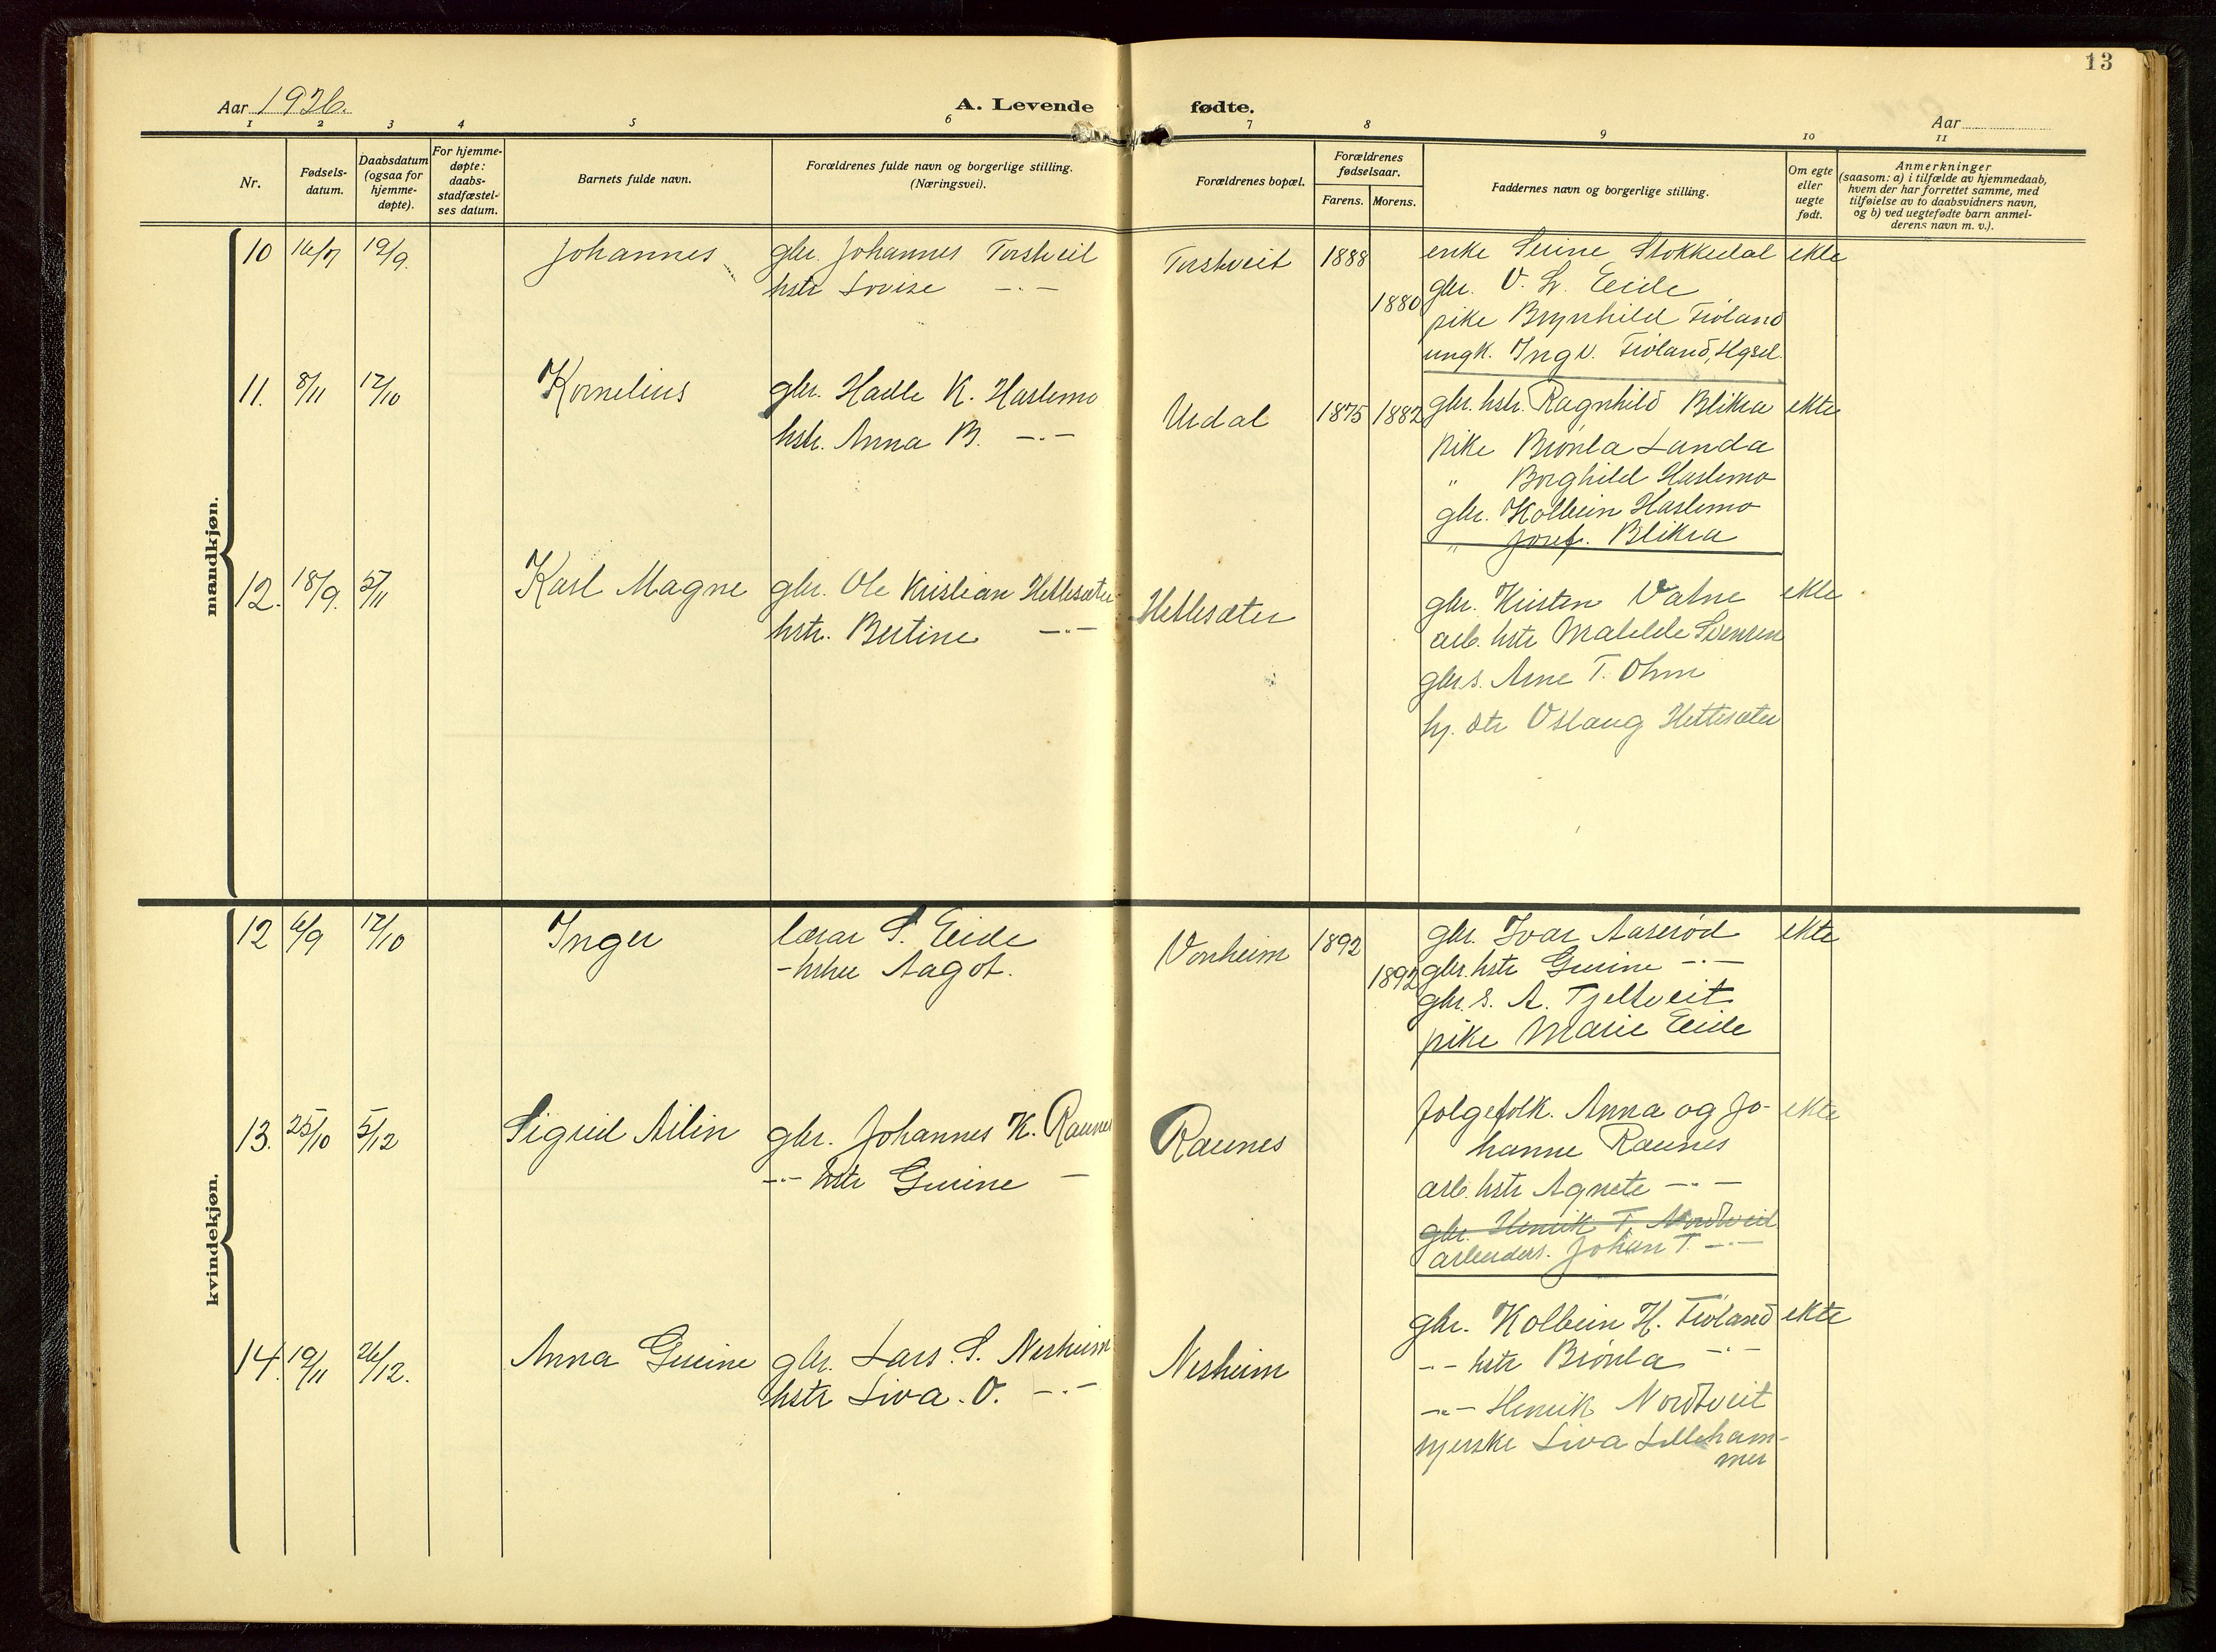 13
Aar 1926.
A. Levende fødte.
Aar
1 2 3 4 5 6 7 8 9 10 11
Nr.
Fødsels-
datum.
Daabsdatum
(ogsaa for
hjemme-
døpte).
For hjemme-
døpte:
daabs-
stadfæstel-
ses datum.
Barnets fulde navn.
Forældrenes fulde navn og borgerlige stilling.
(Næringsvei).
Forældrenes bopæl.
Forældrenes
fødselsaar.
Farens. Morens.
Faddernes navn og borgerlige stilling.
Om egte
eller
uegte
født.
Anmerkninger
(saasom: a) i tilfælde av hjemmedaab,
hvem der har forrettet samme, med
tilføielse av to daabsvidners navn,
og b) ved uegtefødte barn anmel-
derens navn m. v.).
mandkjøn.
10 16/7 19/9. Johannes
gbr. Johannes Torstveit
hstr Lovise -"-
Torstveit 1888
1880
enke Serine Stokkedal ekte
gbr. O. L. Eide
pike Brynhild Fioland
ungk. Ingv. Fioland, Hgsd.
11. 8/11 17/10 Kornelius
gbr. Hadle K. Haslemo
hstr. Anna B. -"-
Urdal 1875 1882
gbr. hstr. Ragnhild Blikra ekte
pike Bronla Landa
" Borghild Haslemo
gbr. Kolbein Haslemo
" Josef. Blikra
12. 18/9. 5/11 Karl Magne
gbr. Ole Kristian Hettesæter
hstr. Bertine -"-
Hettesæter
gbr. Kristen Vatne ekte
arb. hstr Matilde Svensen
gbr.s. Arne T. Ohm
hj. dtr Oslaug Hettesæter
kvindekjøn.
12 6/9 17/10 Inger
lærar S. Eide
-hstru Aagot.
Vonheim 1892
1892
gbr. Ivar Aaserød ekte
gbr. hstr Gurine -"-
gbr. s. A. Tjeltveit
pike Marie Eide
13. 25/10 5/12 Sigrid Ailin
gbr. Johannes K. Raunes
-"- hstr Gurine -
Raunes
folgefolk. Anna og Jo- ekte
hanne Raunes
arb. hstr Agnete -"-
gbr. Henrik T. Nordtveit
arbeiders. Johan T. -"-
14. 19/11 26/12. Anna Gurine
gbr. Lars. S. Nesheim
hstr Siva. O. -"-
Nesheim
gbr. Kolbein H. Fioland ekte
-"- hstr Bronla -"-
-"- Henrik Nordtveit
syerske Siva Lilleham-
mer